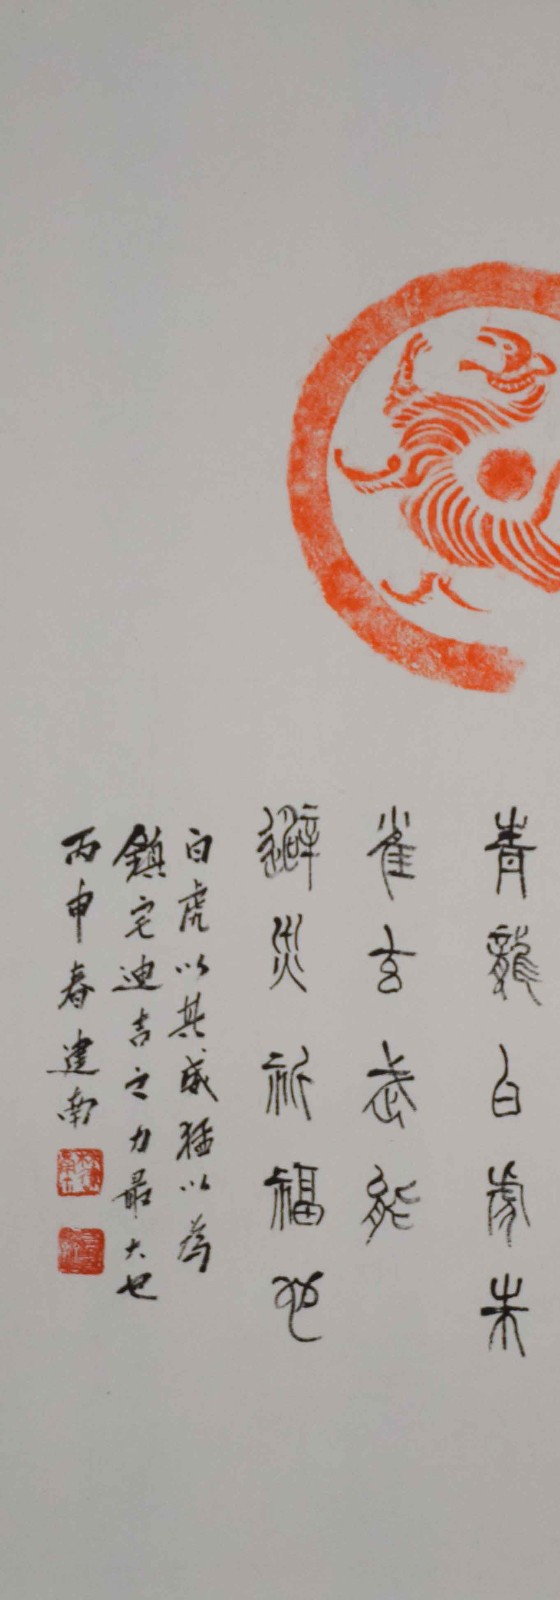 青龍白虎朱
雀玄武能
避災祈福也
白虎以其威猛以為
鎮宅迪吉之力最大也
丙申春建南